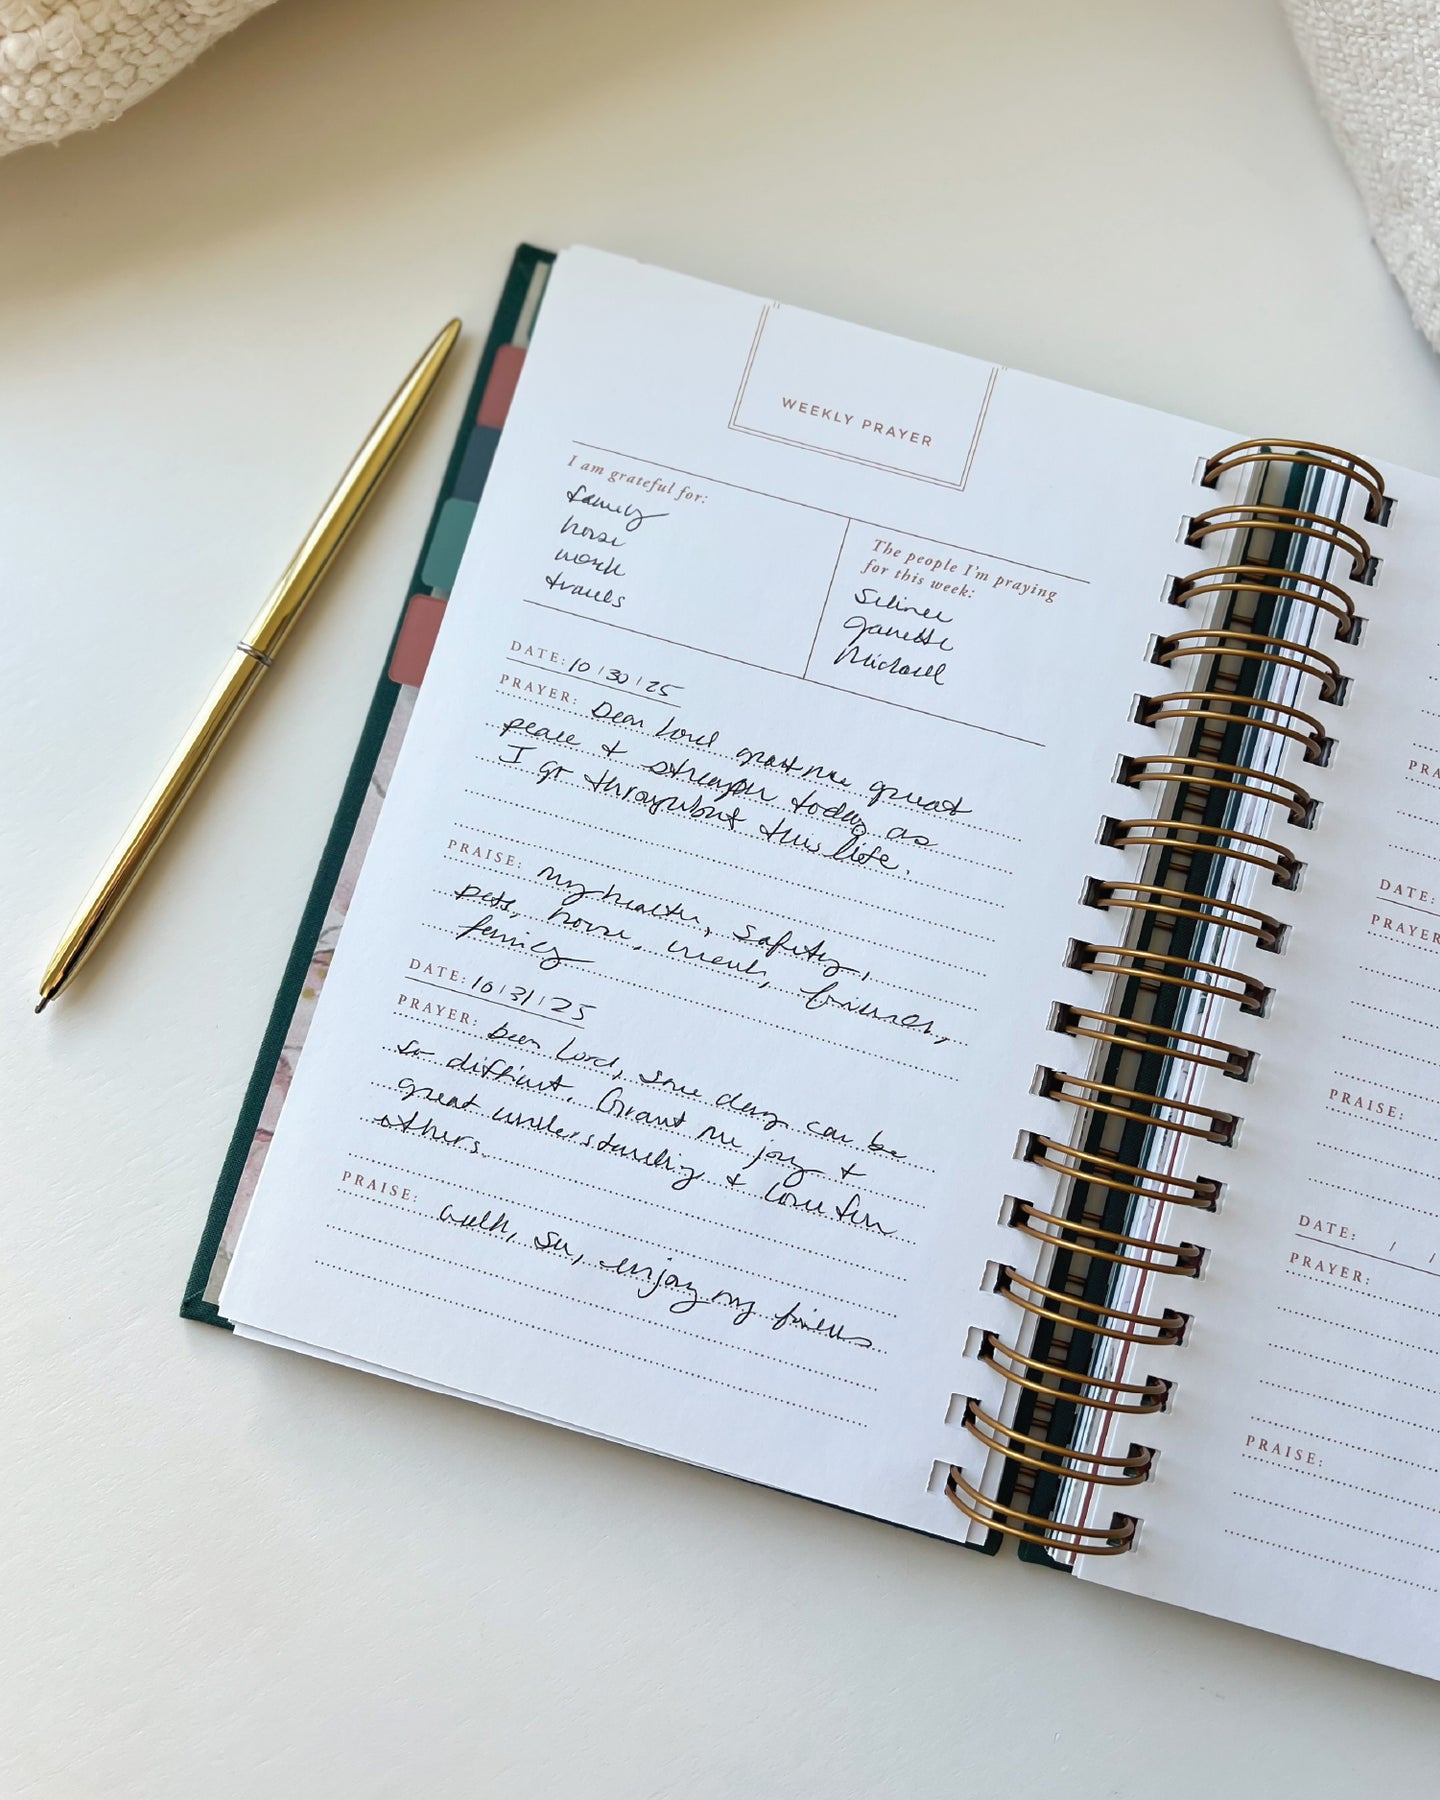 WEEKLY PRAYER
I am grateful for:
family
home
work
travels
The people I'm praying
for this week:
Janette
Michael
DATE: 10/30/25
PRAYER: Dear Lord grant me great
peace + strength today as
I go throughout this life.
PRAISE: my health, safety,
pets, home, work, friends,
family
DATE: 10/31/25
PRAYER: Dear Lord, some days can be
so difficult. Grant me joy +
great understanding + love for
others.
PRAISE: walk, enjoy my friends
PRA
DATE:
PRAYER
PRAISE:
DATE: / /
PRAYER:
PRAISE: